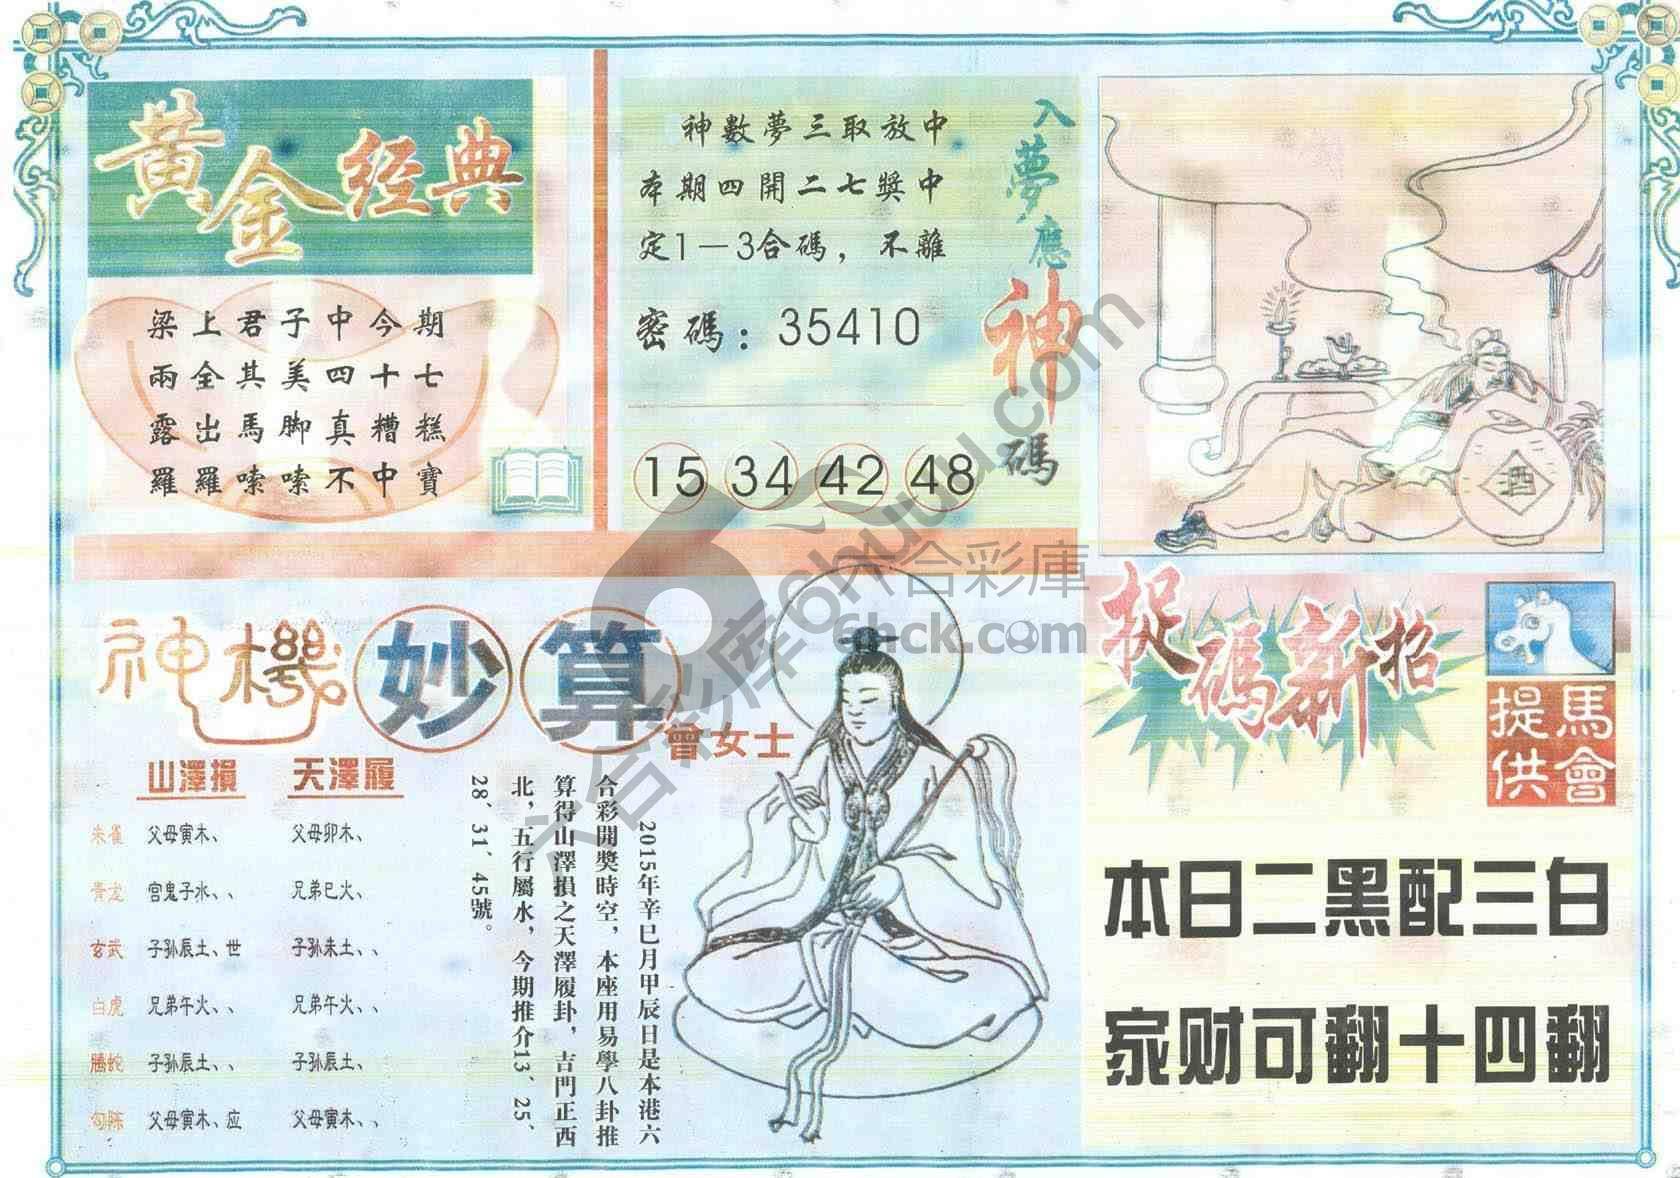 黃金经典
梁上君子中今期
兩全其美四十七
露出馬脚真糟糕
羅羅嗦嗦不中寶
入夢應神碼
神數夢三取放中
本期四開二七獎中
定1－3合碼，不離
密碼：35410
15 34 42 48
酒
神機妙算
曾女士
山澤損 天澤履
朱雀 父母寅木、 父母卯木、
青龙 官鬼子水、、 兄弟巳火、
玄武 子孙辰土、世 子孙未土、、
白虎 兄弟午火、、 兄弟午火、、
腾蛇 子孙辰土、、 子孙辰土、
句陈 父母寅木、应 父母寅木、、
2015年辛巳月甲辰日是本港六
合彩開獎時空，本座用易學八卦推
算得山澤損之天澤履卦，吉門正西
北，五行屬水，今期推介13、25、
28、31、45號。
捉碼新招
馬會提供
本日二黑配三白
家财可翻十四翻
六合彩库 6huuu.com
六合彩庫
6hck.com